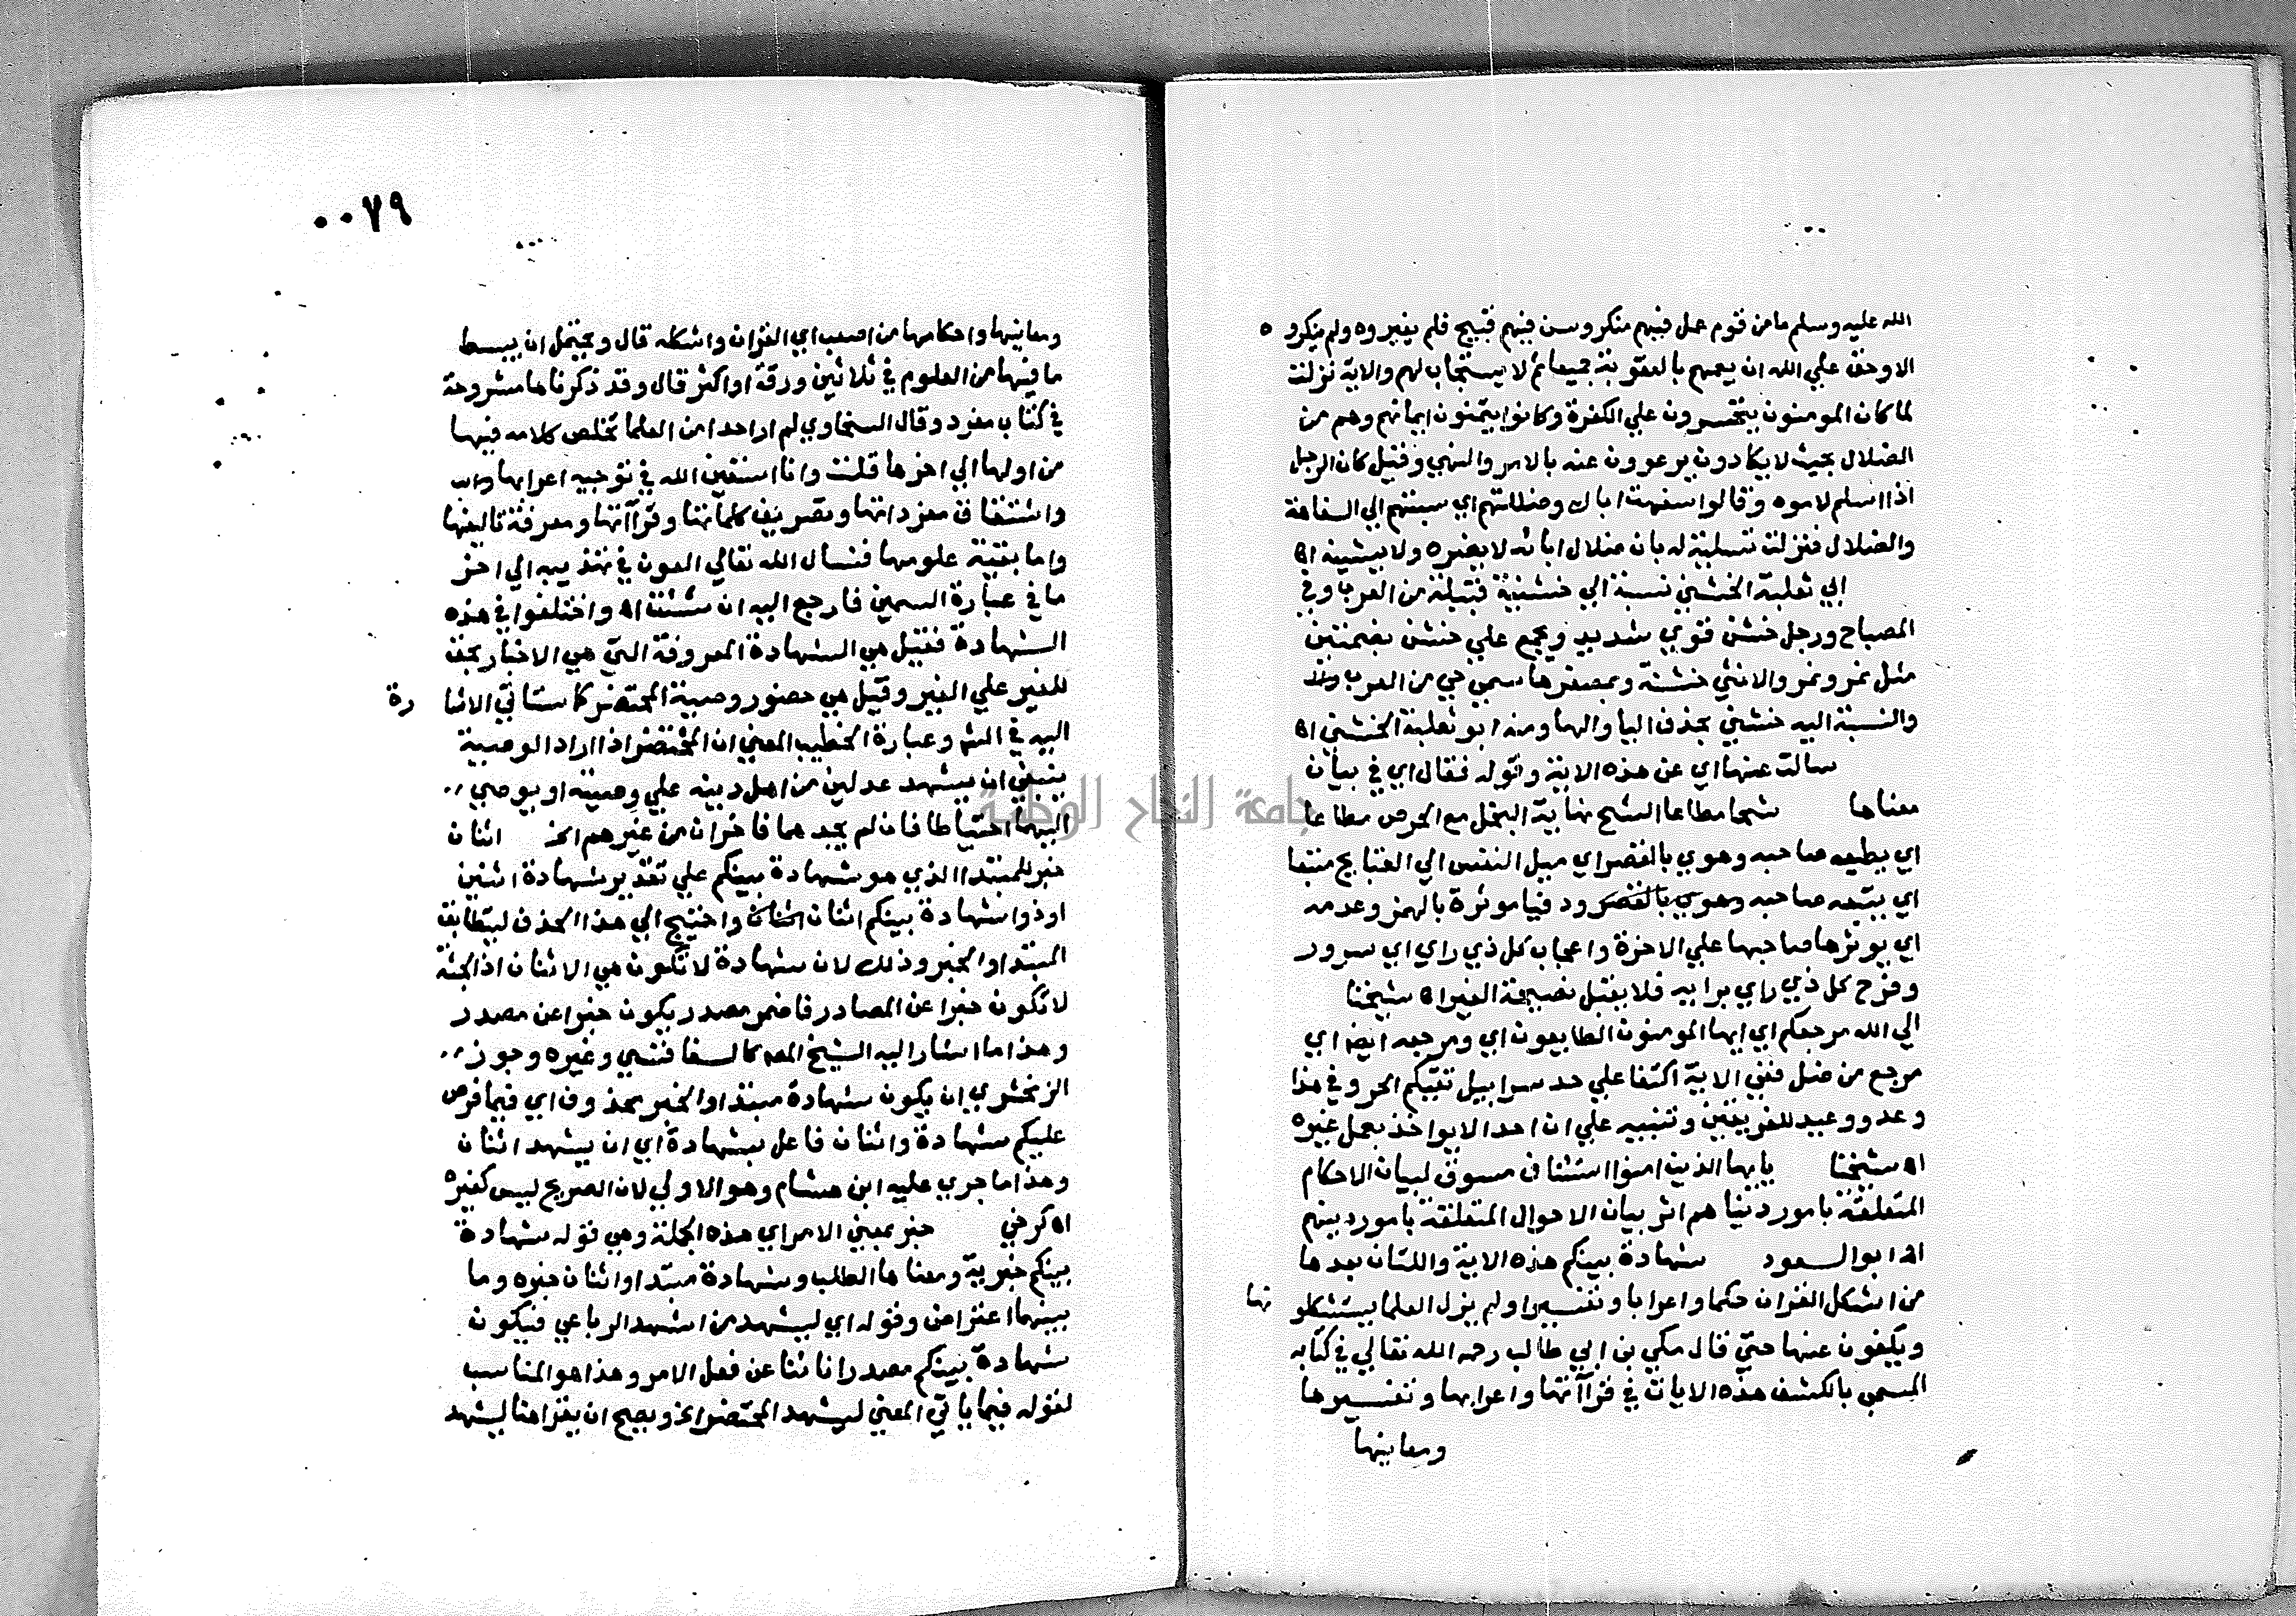 الله عليه وسلم ما من قوم عمل فيهم منكر وسن فيهم قبيح فلم يغيروه ولم ينكروه
الا وحق علي الله ان يعمهم بالعقوبة جميعا ثم لا يستجاب لهم والاية نزلت
لما كان المومنون يتحسرون علي الكفرة وكانوا يتمنون ايمانهم وهم من
الضلال بحيث لا يكادون يرعوون عنه بالامر والنهي وقيل كان الرجل
اذا اسلم لاموه وقالوا سفهت اباك وضللتهم اي سبتهم الي السفاهة
والضلال فنزلت تسلية له بان ضلال ابائه لا يضره ولا يشينه اه
ابي ثعلبة الخشني نسبة الي خشنية قبيلة من العرب وفي
المصباح ورجل خشن قوي شديد ويجمع علي خشن بضمتين
مثل نمر ونمر والانثي خشنة وبمصغرها سمي حي من العرب
والنسبة اليه خشني بحذف اليا والها ومنه ابو ثعلبة الخشني اه
سالت عنها اي عن هذه الاية وقوله فقال اي في بيان
معناها شحا مطاعا الشح نهاية البخل مع الحرص مطاعا
اي يطيعه صاحبه وهوي بالقصر اي ميل النفس الي القبايح متبعا
اي يتبعه صاحبه وهوي بالقصر ودنيا موثرة بالهمز وعدمه
اي يوثرها صاحبها علي الاخرة واعجاب كل ذي راي اي سرور
وفرح كل ذي راي برايه فلا يقبل نصيحة الغير اه شيخنا
الي الله مرجعكم اي ايها المومنون الطايعون اي ومرجعه ايضا اي
مرجع من ضل ففي الاية اكتفا علي حد سرابيل تقيكم الحر وفي هذا
وعد ووعيد للفريقين وتنبيه علي ان احدا لا يواخذ بعمل غيره
اه شيخنا يايها الذين امنوا استئناف مسوق لبيان الاحكام
المتعلقة بامور دنياهم اثر بيان الاحوال المتعلقة بامور دينهم
اه ابو السعود شهادة بينكم هذه الاية واللتان بعدها
من اشكل القران حكما واعرابا وتفسيرا ولم يزل العلما يستشكلونها
ويكفون عنها حتي قال مكي بن ابي طالب رحمه الله تعالي في كتابه
المسمي بالكشف هذه الايات في قرآآتها واعرابها وتفسيرها
ومعانيها
٠٠٧٩
ومعانيها واحكامها من اصعب اي القران واشكله قال ويحتمل ان يبسط
ما فيها من العلوم في ثلاثين ورقة او اكثر قال وقد ذكرناها مشروحة
في كتاب مفرد وقال السخاوي لم ار احدا من العلما تخلص كلامه فيها
من اولها الي اخرها قلت وانا استعين الله في توجيه اعرابها
واشتقاق مفرداتها وتصريف كلماتها وقرآآتها ومعرفة تاليفها
واما بقية علومها فنسال الله تعالي العون في تهذيبه الي اخر
ما في عبارة السمين فارجع اليه ان شئت اه واختلفوا في هذه
الشهادة فقيل هي الشهادة المعروفة التي هي الاخبار بحق
للغير علي الغير وقيل هي حضور وصية المحتضر كما ستاتي الاشارة
اليه في الشر وعبارة الخطيب المعني ان المحتضر اذا اراد الوصية
ينبغي ان يشهد عدلين من اهل دينه علي وصيته او يوصي
اليهما احتياطا فان لم يجدهما فاخران من غيرهم الخ اثنان
خبر للمبتدا الذي هو شهادة بينكم علي تقدير شهادة اثنين
او ذوا شهادة بينكم اثنان واحتيج الي هذا الحذف ليتطابق
المبتدا والخبر وذلك لان شهادة لا تكون هي الاثنان اذ الجثة
لا تكون خبرا عن المصادر فاضمر مصدر يكون خبرا عن مصدر
وهذا ما اشار اليه الشيخ المص كالسفاقسي وغيره وجوز
الزمخشري ان يكون شهادة مبتدا والخبر محذوف اي فيما فرض
عليكم شهادة واثنان فاعل بشهادة اي ان يشهد اثنان
وهذا ما جري عليه ابن هشام وهو الاولي لان الصريح ليس كغيره
اه كرخي خبر بمعني الامر اي هذه الجملة وهي قوله شهادة
بينكم خبرية ومعناها الطلب وشهادة مبتدا واثنان خبره وما
بينهما اعتراض وقوله اي ليشهد من اشهد الرباعي فيكون
شهادة بينكم مصدرا نائبا عن فعل الامر وهذا هو المناسب
لقوله فيما ياتي المعني ليشهد المحتضر الخ ويصح ان يقرا هنا ليشهد
جامعة النجاح الوطنية